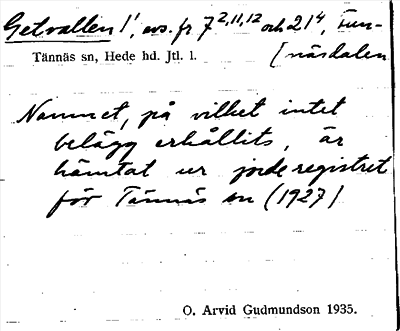 Getvallen 1¹, avs. fr 7²,¹¹,¹² och 21⁴, Fun-
[näsdalen
Tännäs sn, Hede hd. Jtl. l.
Namnet, på vilket intet
belägg erhållits, är
hämtat ur jorderegistret
för Tännäs sn (1927)
O. Arvid Gudmundson 1935.